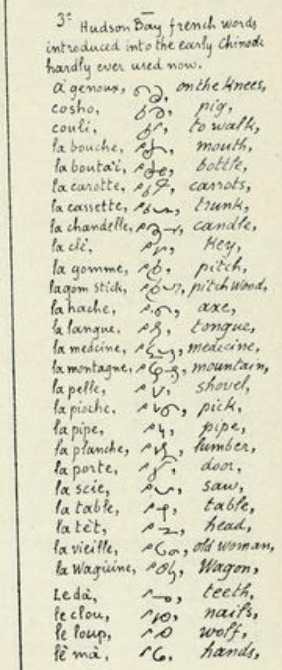 3° Hudson Bay french words
introduced into the early Chinook
hardly ever used now.
à genoux, on the knees,
cosho, pig,
couli, to walk,
la bouche, mouth,
la boutaï, bottle,
la carotte, carrots,
la cassette, trunk,
la chandelle, candle,
la clè, Key,
la gomme, pitch,
lagom stick, pitch wood,
la hache, axe,
la langue, tongue,
la medcine, medecine,
la montagne, mountain,
la pelle, shovel,
la pioche, pick,
la pipe, pipe,
la planche, lumber,
la porte, door,
la scie, saw,
la table, table,
la tèt, head,
la vieille, old woman,
la Waguine, Wagon,
Ledà, teeth,
le clou, nails,
le loup, wolf,
lè mà, hands,